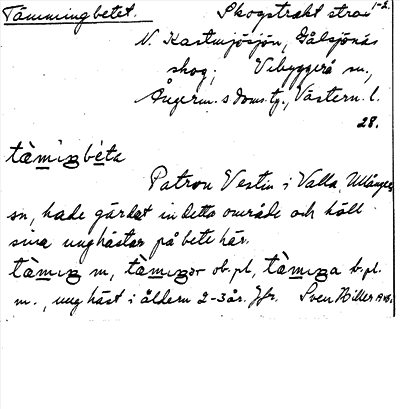 Tämmingbetet. Skogstrakt strax 1-2.
N. Kastmjösjön, Gålsjönäs
skog, Vibyggerå sn.,
Ångerm. s doms.tg., Västern. l.
28.
tàmiŋbéta
Patron Vestin i Valla, Ullånger
sn, hade gärdat in detta område och höll
sina unghästar på bete här.
tàmiŋ m, tàmiŋər ob. pl, tàmiŋa b. pl.
m., ung häst i åldern 2-3 år. Jfr. Sven Hiller